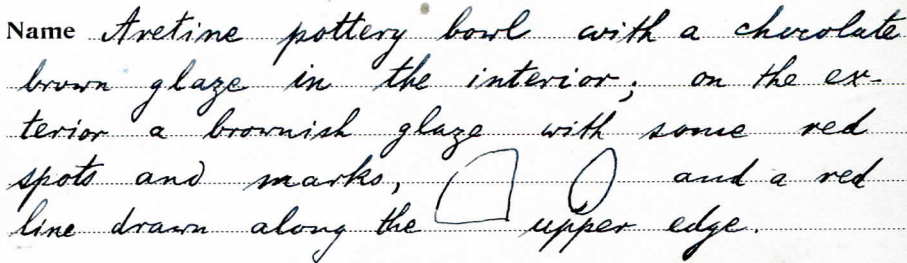 Name Aretine pottery bowl with a chocolate
brown glaze in the interior; on the ex-
terior a brownish glaze with some red
spots and marks, and a red
line drawn along the upper edge.